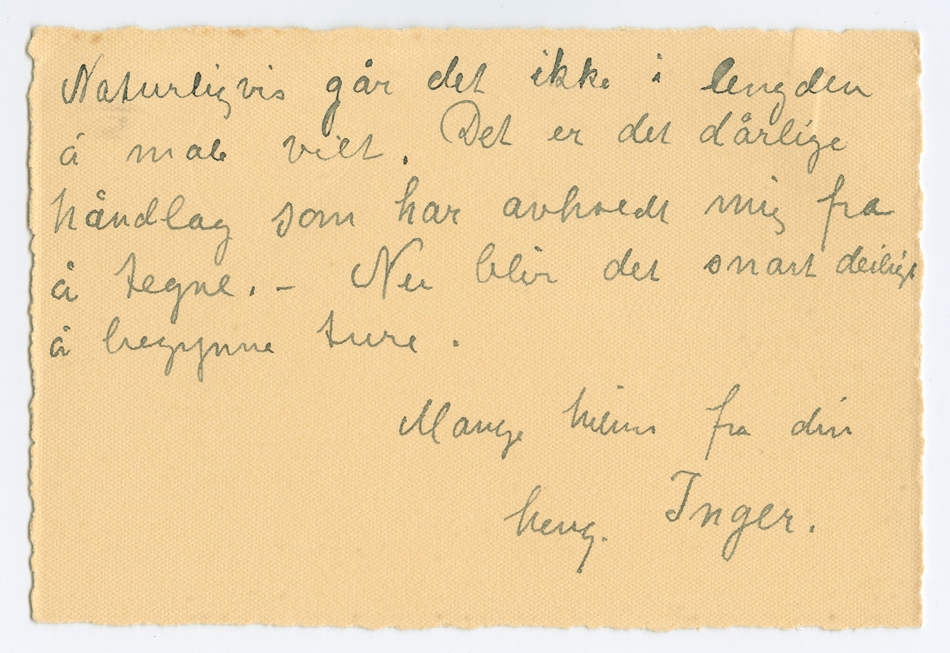 Naturligvis går det ikke i lengden
å male vilt. Det er det dårlige
håndlag som har avholdt mig fra
å tegne. – Nu blir det snart deiligt
å begynne ture.
Mange hilsn fra din
heng. Inger.